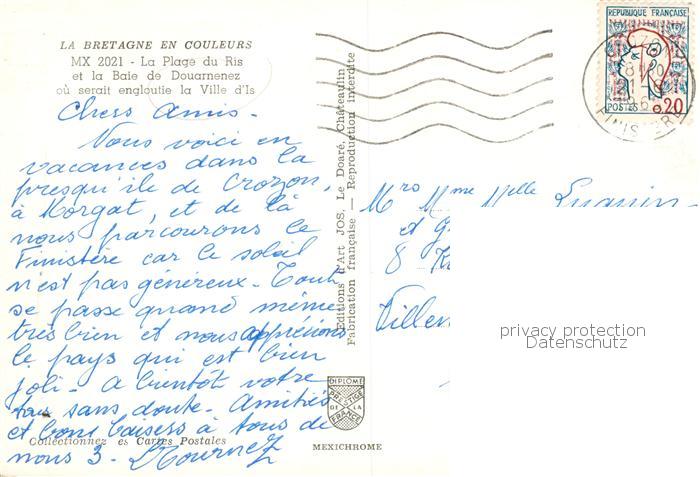 LA BRETAGNE EN COULEURS
MX 2021 - La Plage du Ris
et la Baie de Douarnenez
où serait engloutie la Ville d'Is
Chers Amis -
Nous voici en
vacances dans la
presqu'ile de Crozon,
à Morgat, et de là
nous parcourons le
Finistère car le soleil
n'est pas généreux - Tout
se passe quand même
très bien et nous apprécions
le pays qui est bien
joli - A bientôt votre
sans doute - Amitiés
et bons baisers à tous de
nous 3 -
Collectionnez es Cartes Postales
Editions d'Art JOS, Le Doaré, Châteaulin
Fabrication française — Reproduction interdite
DIPLOME
PRESTIGE
DE LA
FRANCE
MEXICHROME
REPUBLIQUE FRANÇAISE
POSTES
0,20
FINISTERE
Mrs Mme Melle
et
8
Villem
privacy protection
Datenschutz